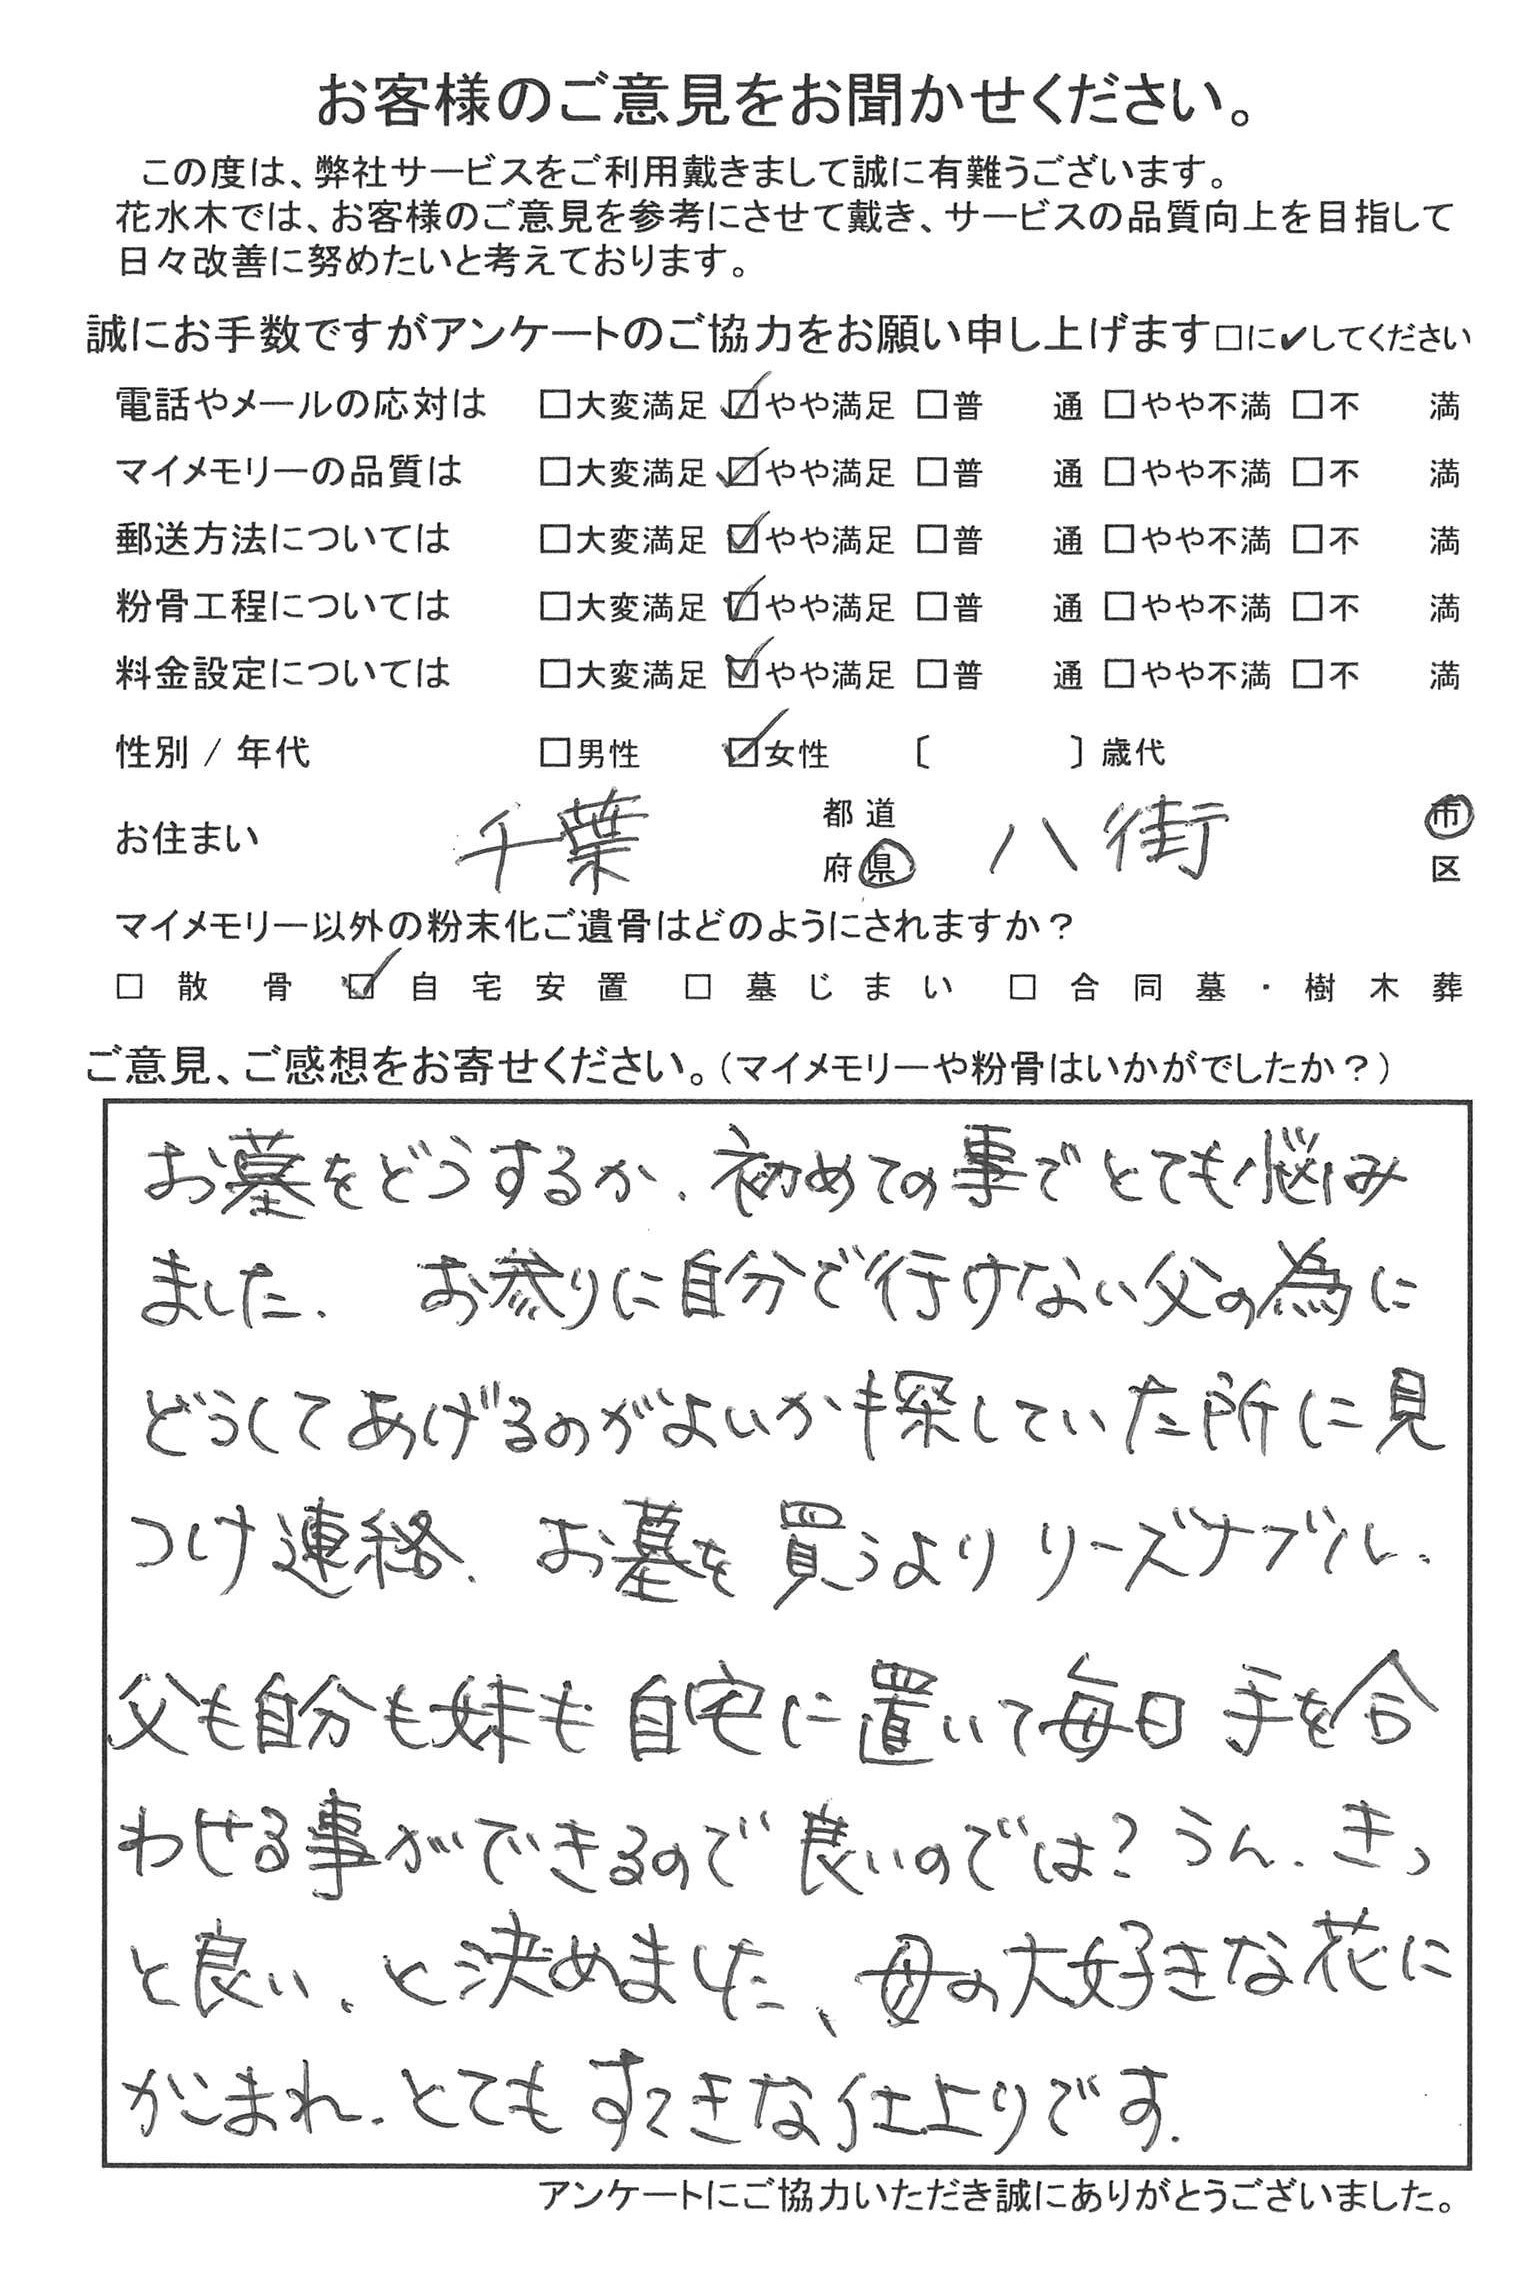 お客様のご意見をお聞かせください。
この度は、弊社サービスをご利用戴きまして誠に有難うございます。
花水木では、お客様のご意見を参考にさせて戴き、サービスの品質向上を目指して
日々改善に努めたいと考えております。
誠にお手数ですがアンケートのご協力をお願い申し上げます□に✔してください
電話やメールの応対は □大変満足 ☑やや満足 □普 通 □やや不満 □不 満
マイメモリーの品質は □大変満足 ☑やや満足 □普 通 □やや不満 □不 満
郵送方法については □大変満足 ☑やや満足 □普 通 □やや不満 □不 満
粉骨工程については □大変満足 ☑やや満足 □普 通 □やや不満 □不 満
料金設定については □大変満足 ☑やや満足 □普 通 □やや不満 □不 満
性別 / 年代 □男性 ☑女性 〔 〕歳代
お住まい 千葉 都道府県 八街 市区
マイメモリー以外の粉末化ご遺骨はどのようにされますか？
□ 散骨 ☑ 自宅安置 □ 墓じまい □ 合同墓・樹木葬
ご意見、ご感想をお寄せください。（マイメモリーや粉骨はいかがでしたか？）
お墓をどうするか、初めての事でとても悩み
ました。 お参りに自分で行けない父の為に
どうしてあげるのがよいか探していた所に見
つけ連絡、お墓を買うよりリーズナブル、
父も自分も妹も自宅に置いて毎日手を合
わせる事ができるので良いのでは？うん、きっ
と良い、と決めました、母の大好きな花に
かこまれ、とてもすてきな仕上りです。
アンケートにご協力いただき誠にありがとうございました。